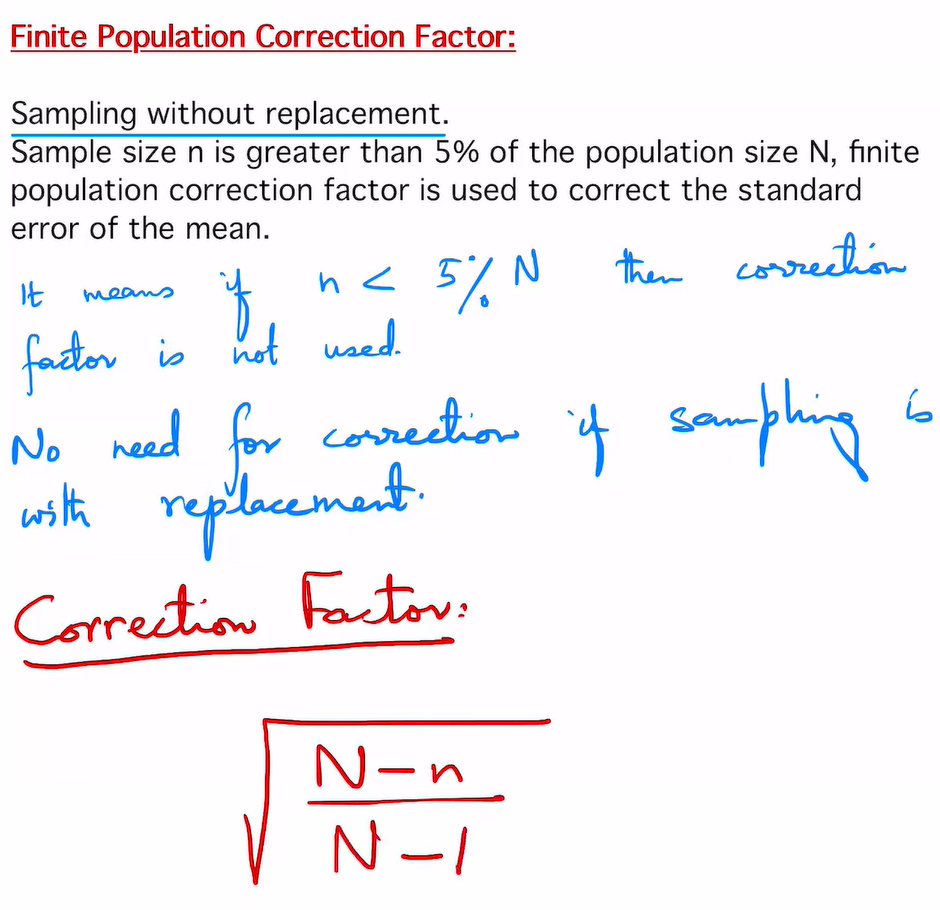 Finite Population Correction Factor:
Sampling without replacement.
Sample size n is greater than 5% of the population size N, finite
population correction factor is used to correct the standard
error of the mean.
It means if n < 5% N then correction
factor is not used.
No need for correction if sampling is
with replacement.
Correction Factor:
√
N-n
N-1